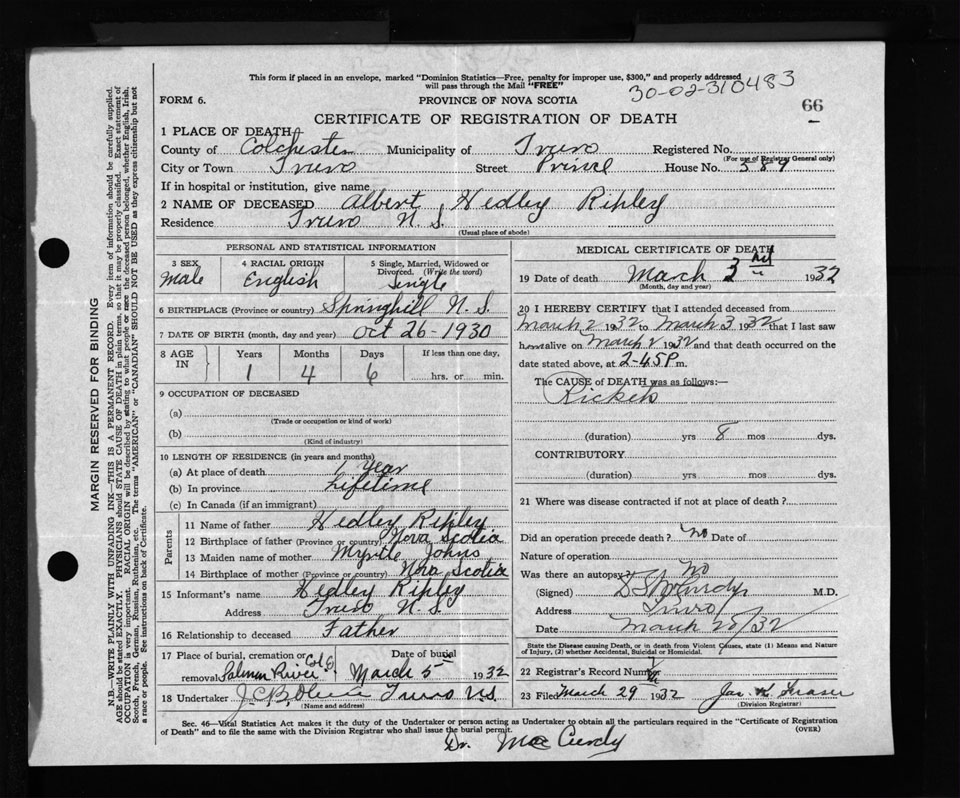 This form if placed in an envelope, marked "Dominion Statistics—Free, penalty for improper use, $300," and properly addressed
will pass through the Mail "FREE"
30-02-310483
FORM 6.
PROVINCE OF NOVA SCOTIA
66
CERTIFICATE OF REGISTRATION OF DEATH
1 PLACE OF DEATH
County of Colchester Municipality of Truro Registered No.
(For use of Registrar General only)
City or Town Truro Street Prince House No. 589
If in hospital or institution, give name
2 NAME OF DECEASED Albert Hedley Ripley
Residence Truro N. S.
(Usual place of abode)
PERSONAL AND STATISTICAL INFORMATION
3 SEX
Male
4 RACIAL ORIGIN
English
5 Single, Married, Widowed or
Divorced. (Write the word)
Single
6 BIRTHPLACE (Province or country) Springhill N. S.
7 DATE OF BIRTH (month, day and year) Oct 26 - 1930
8 AGE IN
Years Months Days If less than one day,
1 4 6 hrs. or min.
9 OCCUPATION OF DECEASED
(a)
(Trade or occupation or kind of work)
(b)
(Kind of industry)
10 LENGTH OF RESIDENCE (in years and months)
(a) At place of death 1 year
(b) In province Lifetime
(c) In Canada (if an immigrant)
Parents
11 Name of father Hedley Ripley
12 Birthplace of father (Province or country) Nova Scotia
13 Maiden name of mother Myrtle Johns
14 Birthplace of mother (Province or country) Nova Scotia
15 Informant's name Hedley Ripley
Address Truro N. S.
16 Relationship to deceased Father
17 Place of burial, cremation or removal Salmon River Col. Co. Date of burial March 5 1932
18 Undertaker Truro N.S.
(Name and address)
MEDICAL CERTIFICATE OF DEATH
19 Date of death March 3 1932
(Month, day and year)
20 I HEREBY CERTIFY that I attended deceased from
March 2 1932 to March 3 1932 that I last saw
him alive on March 2 1932 and that death occurred on the
date stated above, at 2-45 P m.
The CAUSE of DEATH was as follows:—
Rickets
(duration) yrs 8 mos dys.
CONTRIBUTORY
(duration) yrs mos dys.
21 Where was disease contracted if not at place of death?
Did an operation precede death? No Date of
Nature of operation
Was there an autopsy? No
(Signed) M.D.
Address Truro
Date March 20/32
State the Disease causing Death, or in death from Violent Causes, state (1) Means and Nature
of Injury, (2) whether Accidental, Suicidal or Homicidal.
22 Registrar's Record Number
23 Filed March 29 1932 Jas. Fraser
(Division Registrar)
Sec. 46—Vital Statistics Act makes it the duty of the Undertaker or person acting as Undertaker to obtain all the particulars required in the "Certificate of Registration
of Death" and to file the same with the Division Registrar who shall issue the burial permit.
(OVER)
Dr. MacCurdy
MARGIN RESERVED FOR BINDING
N.B.—WRITE PLAINLY WITH UNFADING INK—THIS IS A PERMANENT RECORD. Every item of information should be carefully supplied.
AGE should be stated EXACTLY. PHYSICIANS should STATE CAUSE OF DEATH in plain terms, so that it may be properly classified. Exact statement of
OCCUPATION is very important. RACIAL ORIGIN will be described by stating to what people or race the deceased person belonged, whether English, Irish,
Scotch, French, German, Russian, Ruthenian, etc. The terms "AMERICAN" or "CANADIAN" SHOULD NOT BE USED as they express citizenship but not
a race or people. See instructions on back of Certificate.